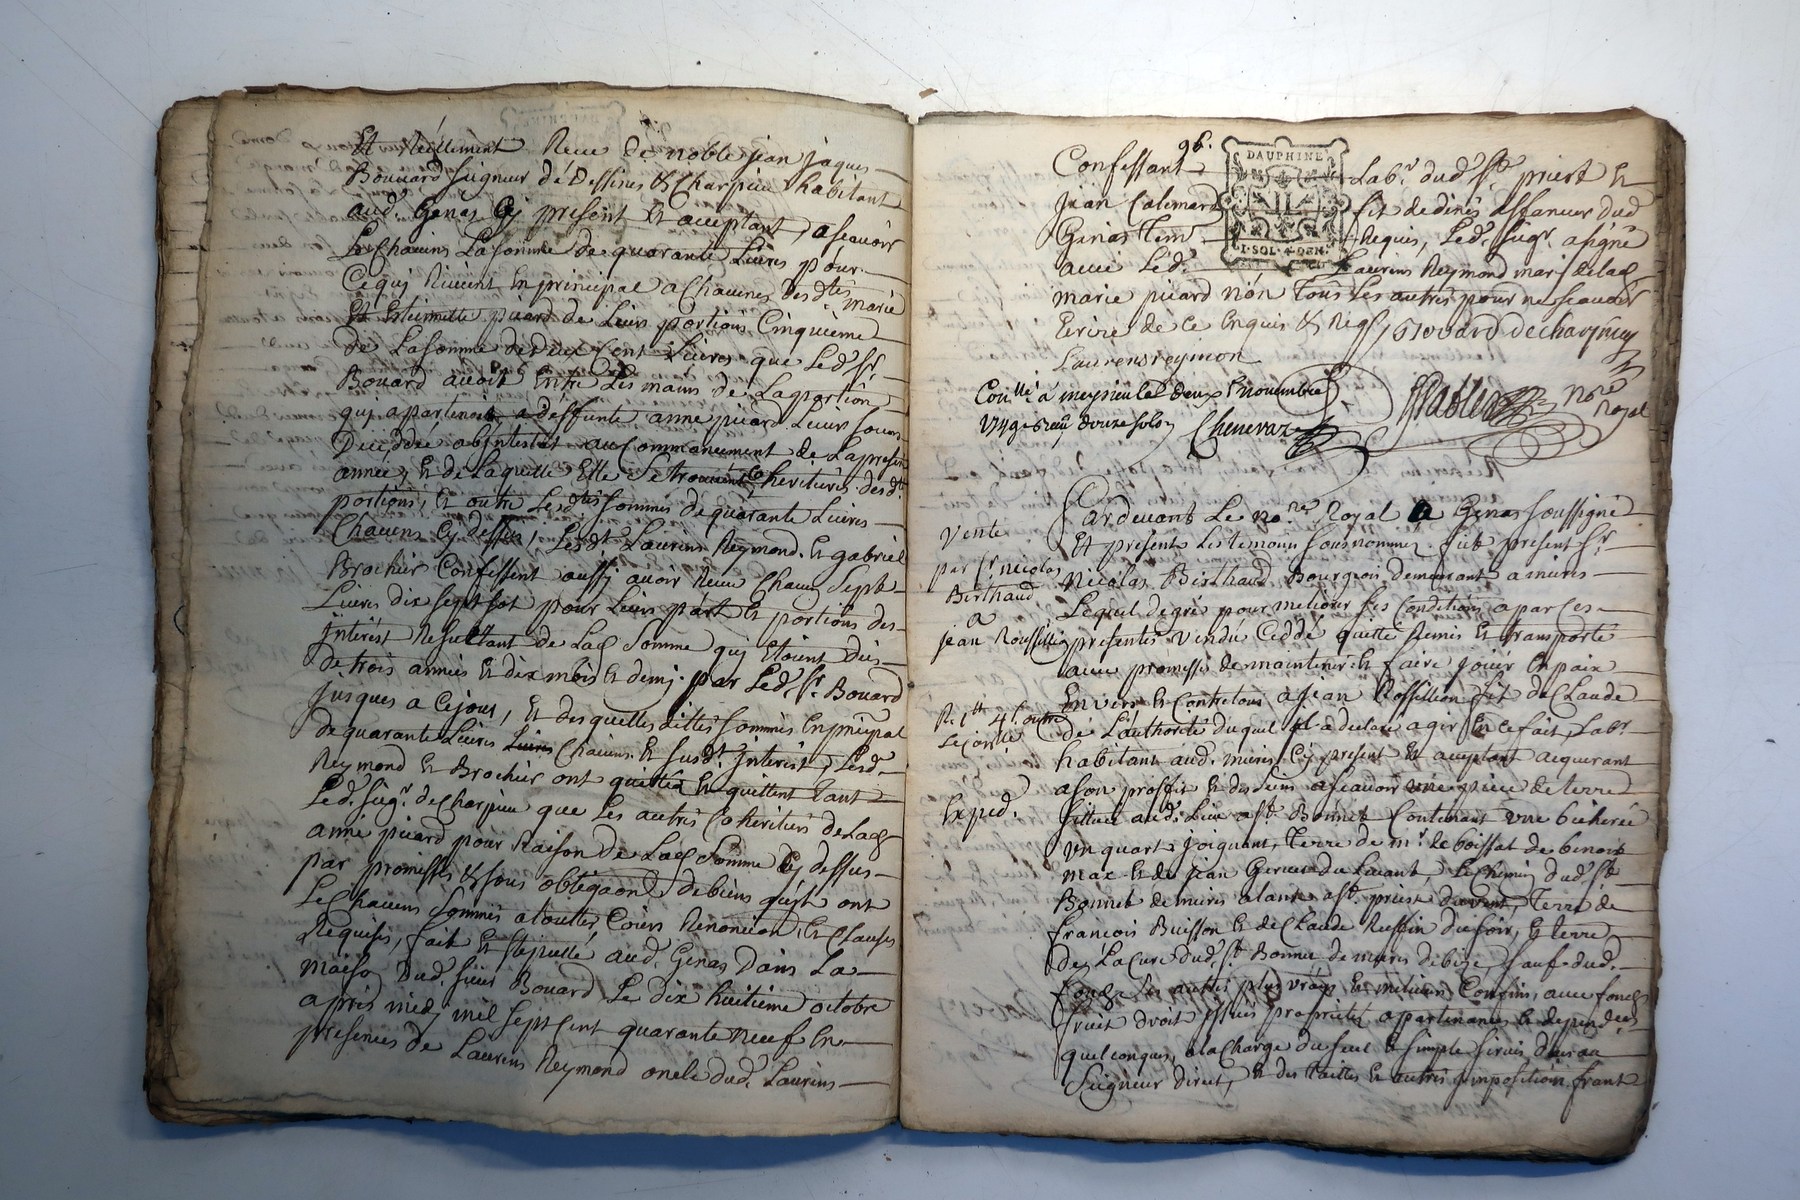 Et réellement Receu de noble jean jaques
Bouuard seigneur de Dessines & Charpieu habitant
aud. Genas Cy present et acceptant, ascauoir
Le Chacuns La somme de quarante Liures pour
Ce quj Reuient En principal a Chacunes des dtes marie
Et Estiennette picard de Leurs portions Cinquieme
de La somme de deux Cent Liures que Led. Sr.
Bouard auoit Entre Les mains de La portion
quj apartenoit a deffunte anne picard Leur soeur
Decedée abintestat au Commancement de La presente
année, Et de Laquelle Elle se trouuent Coheritieres des dt.
portions, Et outre Lesdtes sommes de quarante Liures
Chacuns Cy dessus, Lesdt Laurens Reymond Et gabriel
Brochier Confessent aussy auoir Receu Chacun Sept
Liures dix sept sol pour Leurs part Et portions des
jnterest Resultant de Lad somme quj Etoient dus
de trois années Et dix mois Et demj par Led. Sr. Bouard
jusques a Cejour, Et desquelles dittes sommes En principal
de quarante Liures Liures Chacuns Et susd. jnterest, Lesd.
Reymond Et Brochier ont quitté Et quittent tant
Led. seigr. de Charpieu que Les autres Coheritiers de Lad
anne picard pour Raison de Lad somme Cy dessus
par promesses & sous obligaons de biens qu'jls ont
Le Chacuns soumis a toutes Cours Renoncion, Et Clauses
Requises, fait Et stipullé aud. Genas Dans La
maison Dud. sieur Bouard Le dix huitieme octobre
apres midj mil sept Cent quarante neuf En
presences de Laurens Reymond oncle dud. Laurens
96.
DAUPHINE
I·SOL·4·DEN.
Confessant Labr. dud. St. priest Et
jean Calemard fils de dines affaneur dud
Genas Tem Requis, Led. seigr. a signé
auec Led. Laurens Reymond marj de lad
marie picard non tous Les autres pour ne scauoir
Ecrire de Ce Enquis & Reqs / Bouard de charpieu
Laurens reymon
Conllé a meysieu le deux Nouembre
1749 Receu douze sols Cheneraz
Nore Royal
Vente
par Sr. nicolas
Berthaud
a
jean Roussillion
Re 1lt 4 s. outre
Expéd.
Pardeuant Le nore. Royal a Genas soussigné
Et present Les temoins sous nommez fut present Sr.
nicolas Berthaud Bourgeois demeurant a mures
Lequel de gré pour meliorer ses Conditions a par Ces
presentes vendu Ceddé quitté Remis Et transporté
auec promesse de maintenir Et faire jouir En paix
Enuers Et Contre tous a jean Rossillion fils de Claude
de L'authorité duquel jl a declaré agir En ce fait, Labr.
habitant aud. mures Cy present Et acceptant acquerant
a son proffit Et des siens ascauoir vne piece de terre
sittuée aud. Lieu a St. Bonnet Contenant vne bicherée
vn quart joignant Terre de mr. de boissat de benoit
max Et de jean Geruais du Leuant, Le Chemin dud. St.
Bonnet de mures alant a St. priest du vent, Terre de
francois Buisson Et de Claude Ruffin du soir, Et terre
de La Cure dud. St. Bonnet de mures de bize, sauf dud.
fonds Les autres plus vrays Et meilleurs Confins, auec fonds
fruit droit jssues proprietés apartenances Et dependces
quelconques, a la Charge du seul & simple seruis deu au
seigneur direct, Et des Tailles Et autres jmpositions, franc